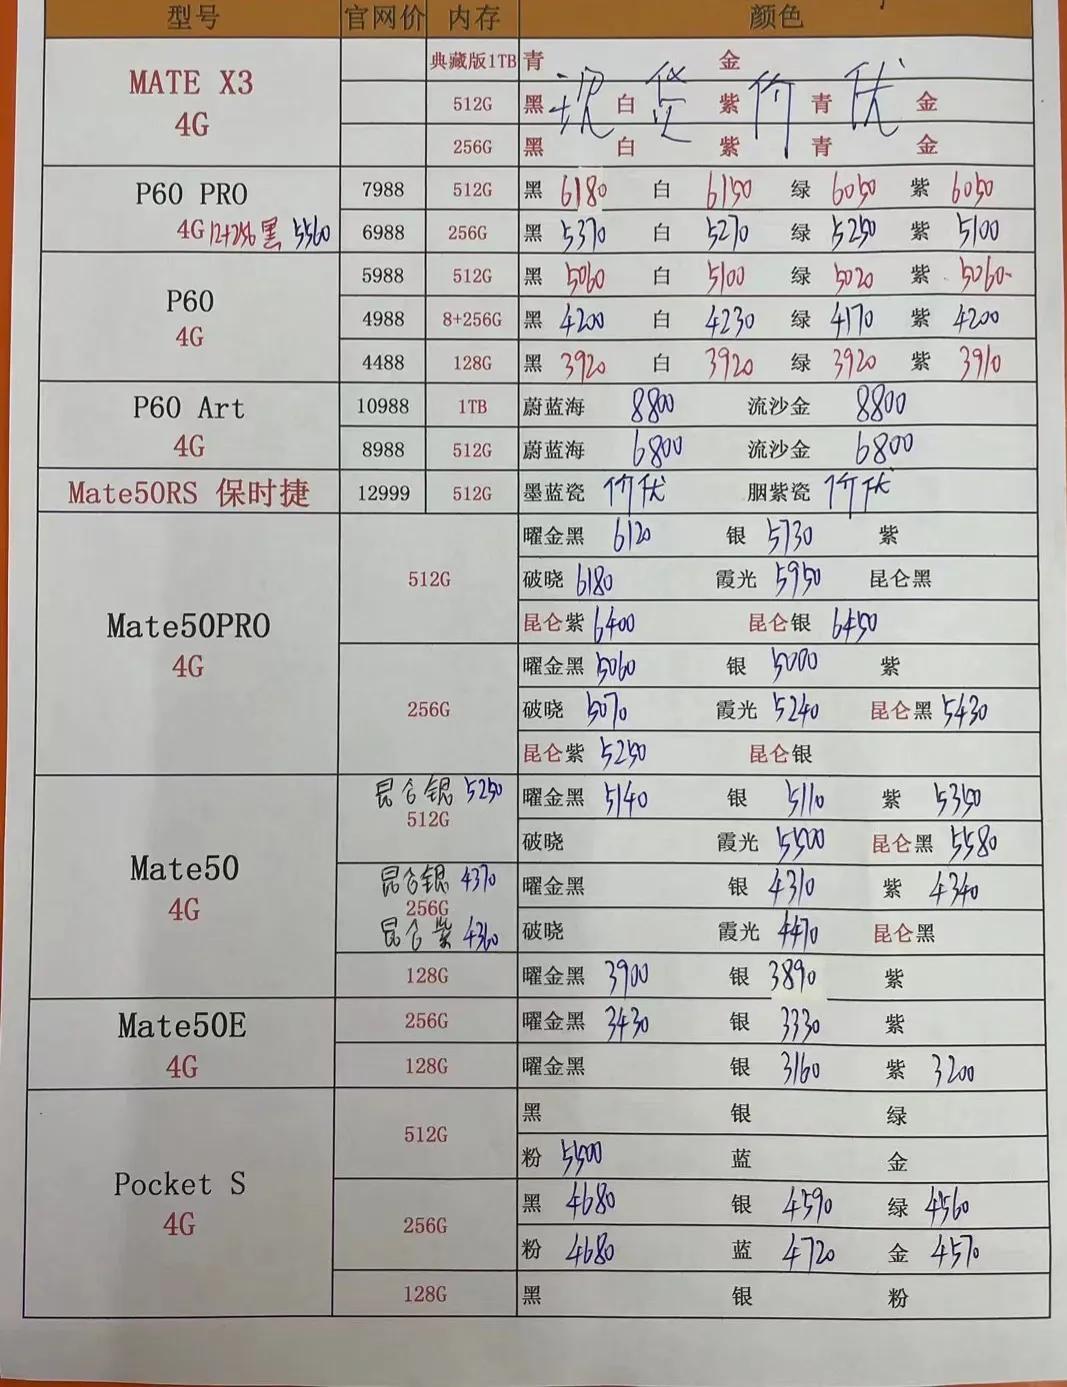 型号 官网价 内存 颜色
典藏版1TB 青 金
MATE X3
4G
512G 黑 白 紫 青 金
现货价优
256G 黑 白 紫 青 金
P60 PRO
4G 12+256 黑 5560
7988 512G 黑 6180 白 6150 绿 6050 紫 6050
6988 256G 黑 5370 白 5270 绿 5250 紫 5100
P60
4G
5988 512G 黑 5060 白 5100 绿 5020 紫 5060
4988 8+256G 黑 4200 白 4230 绿 4170 紫 4200
4488 128G 黑 3920 白 3920 绿 3920 紫 3910
P60 Art
4G
10988 1TB 蔚蓝海 8800 流沙金 8800
8988 512G 蔚蓝海 6800 流沙金 6800
Mate50RS 保时捷 12999 512G 墨蓝瓷 价优 胭紫瓷 价优
Mate50PRO
4G
512G
曜金黑 6120 银 5730 紫
破晓 6180 霞光 5950 昆仑黑
昆仑紫 6400 昆仑银 6450
256G
曜金黑 5060 银 5000 紫
破晓 5070 霞光 5240 昆仑黑 5430
昆仑紫 5250 昆仑银
Mate50
4G
昆仑银 5250
512G
曜金黑 5140 银 5110 紫 5350
破晓 霞光 5500 昆仑黑 5580
昆仑银 4370
256G
昆仑紫 4360
曜金黑 银 4310 紫 4340
破晓 霞光 4470 昆仑黑
128G 曜金黑 3900 银 3890 紫
Mate50E
4G
256G 曜金黑 3430 银 3330 紫
128G 曜金黑 银 3160 紫 3200
Pocket S
4G
512G
黑 银 绿
粉 5500 蓝 金
256G
黑 4680 银 4590 绿 4560
粉 4680 蓝 4720 金 4570
128G 黑 银 粉